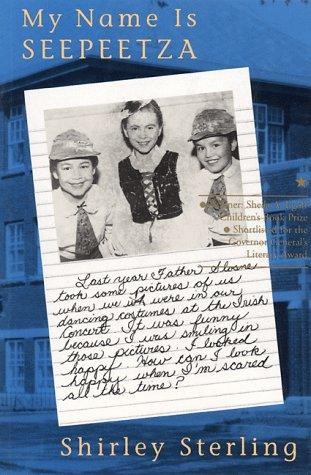 My Name Is
SEEPEETZA
Winner: Sheila A. Egoff
Children's Book Prize
Shortlisted for the
Governor General's
Literary Award
Last year Father Sloane
took some pictures of us
when we were in our
dancing costumes at the Irish
Concert. It was funny
because I was smiling in
those pictures. I looked
happy. How can I look
happy when I'm scared
all the time?
Shirley Sterling